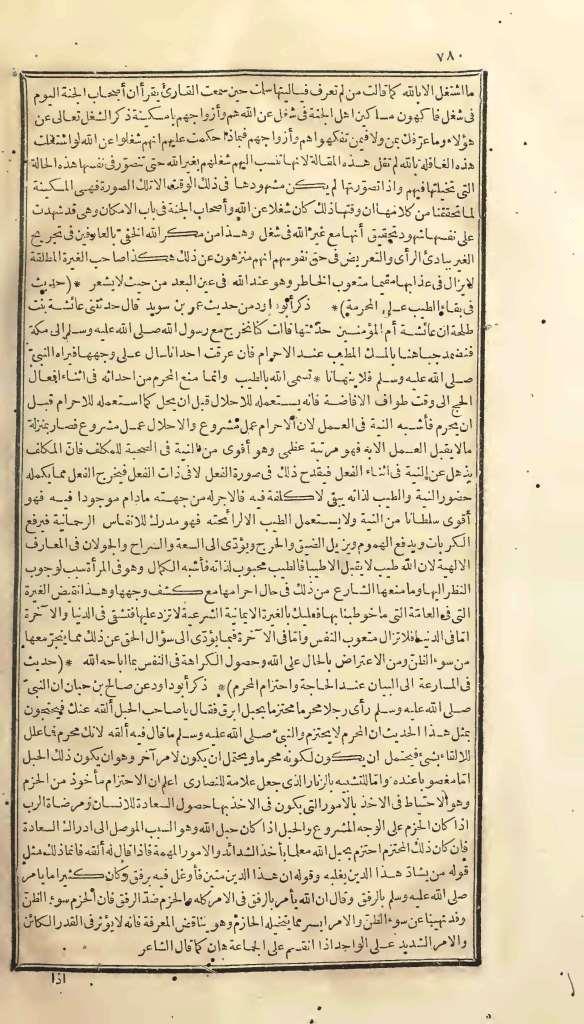 ٧٨٠
ما اشتغل الا بالله كما قالت من لم تعرف فياليتها سكتت حين سمعت القارئ يقرأ ان أصحاب الجنة اليوم
فى شغل فاكهون مساكين اهل الجنة فى شغل عن الله هم وأزواجهم يا مسكينة ذكر الشغل تعالى عن
هؤلاء وما عرّفك بمن ولا فيمن تفكهوا هم وأزواجهم فبماذا حكمت عليهم انهم شغلوا عن الله لو اشتغلت
هذه القائلة بالله لم تقل هذه المقالة لانها تنسب اليهم شغلهم بغير الله حتى تتصوّر فى نفسها هذه الحالة
التى تخيلتها فيهم واذا تصوّرتها لم يكن مشهودها فى ذلك الوقت الا تلك الصورة فهى المسكينة
لما تحققنا من كلامها ان وقتها ذلك كان شغلا عن الله وأصحاب الجنة فى باب الامكان وهى قد شهدت
على نفسها شهود تحقيق أنها مع غير الله فى شغل وهذا من مكر الله الخفى بالعارفين فى تجريح
الغير ببادئ الرأى والتعريض فى حق نفوسهم انهم منزهون عن ذلك هكذا صاحب الغيرة المطلقة
لا يزال فى عذابها مقيما متعوب الخاطر وهو عند الله فى عين البعد من حيث لا يشعر * (حديث
فى بقاء الطيب على المحرمة) * ذكر أبو داود من حديث عمر بن سويد قال حدثتنى عائشة بنت
طلحة ان عائشة أم المؤمنين حدّثتها قالت كنا نخرج مع رسول الله صلى الله عليه وسلم إلى مكة
فنضمد جباهنا بالمسك المطيب عند الاحرام فان عرقت احدانا سال على وجهها فيراه النبىّ
صلى الله عليه وسلم فلا ينهانا * تسمى الله بالطيب وانما منع المحرم من احداثه فى اثناء افعال
الحج الى وقت طواف الافاضة فانه يستعمله للاحلال قبل ان يحل كما استعمله للاحرام قبل
ان يحرم فأشبه النية فى العمل لان الاحرام عمل مشروع والاحلال عمل مشروع فصار بمنزلة
ما لا يقبل العمل الا به فهو مرتبة عظمى وهو أقوى من النية فى الصحبة للمكلف فان المكلف
يذهل عن النية فى اثناء الفعل فيقدح ذلك فى صورة الفعل لا فى ذات الفعل فيخرج الفعل مما يكمله
حضور النية والطيب لذاته يبقى لا كلفة فيه فالاجر له من جهته مادام موجودا فيه فهو
أقوى سلطانا من النية ولا يستعمل الطيب الا لرائحته فهو مدرك للانفاس الرحمانية فيرفع
الكربات ويدفع الهموم ويزيل الضيق والحرج ويؤدّى الى السعة والسراح والجولان فى المعارف
الالهية لان الله طيب لا يقبل الا طيبا فالطيب محبوب لذاته فأشبه الكمال وهو فى المرأة سبب لوجوب
النظر اليها وما منعها الشارع من ذلك فى حال احرامها مع كشف وجهها وهذا نقيض الغيرة
التى فى العامّة التى ما خوطبنا بها فعليك بالغيرة الايمانية الشرعية لا تزد عليها فتشقى فى الدنيا والآخرة
امّا فى الدنيا فلا تزال متعوب النفس وامّا فى الآخرة فبما يؤدّى الى سؤال الحق عن ذلك مما ينجرّ معها
من سوء الظنّ ومن الاعتراض بالحال على الله وحصول الكراهة فى النفس بما اباحه الله * (حديث
فى المسارعة الى البيان عند الحاجة واحترام المحرم) * ذكر أبو داود عن صالح بن حيان ان النبىّ
صلى الله عليه وسلم رأى رجلا محرما محتزما بحبل ابرق فقال يا صاحب الحبل ألقه عنك فيحتجون
بمثل هذا الحديث ان المحرم لا يحتزم والنبىّ صلى الله عليه وسلم ما قال فيه ألقه لانك محرم فما علل
للالقاء بشئ فيحتمل ان يكون لكونه محرما ويحتمل ان يكون لامر آخر وهو ان يكون ذلك الحبل
امّا مغصوبا عنده وامّا للتشبيه بالزنار الذى جعل علامة للنصارى اعلم ان الاحتزام مأخوذ من الحزم
وهو الاحتياط فى الاخذ بالامور التى يكون فى الاخذ بها حصول السعادة للانسان ومرضاة الرب
اذا كان الحزم على الوجه المشروع والحبل اذا كان حبل الله وهو السبب الموصل الى ادراك السعادة
فان كان ذلك المحتزم احتزم بحبل الله معلما بأخذ الشدائد والامور المهمة فاذا قال له ألقه فانما ذلك مثل
قوله من يشادّ هذا الدين يغلبه وقوله ان هذا الدين متين فأوغل فيه برفق وكان كثيرا ما يأمر
صلى الله عليه وسلم بالرفق وقال ان الله يأمر بالرفق فى الامر كله والحزم ضدّ الرفق فان الحزم سوء الظنّ
وقد نهينا عن سوء الظنّ والامر ايسر مما يتخيله الحازم وهو يناقض المعرفة فانه لا يؤثر فى القدر الكائن
والامر الشديد على الواحد اذا انقسم على الجماعة هان كما قال الشاعر
اذا